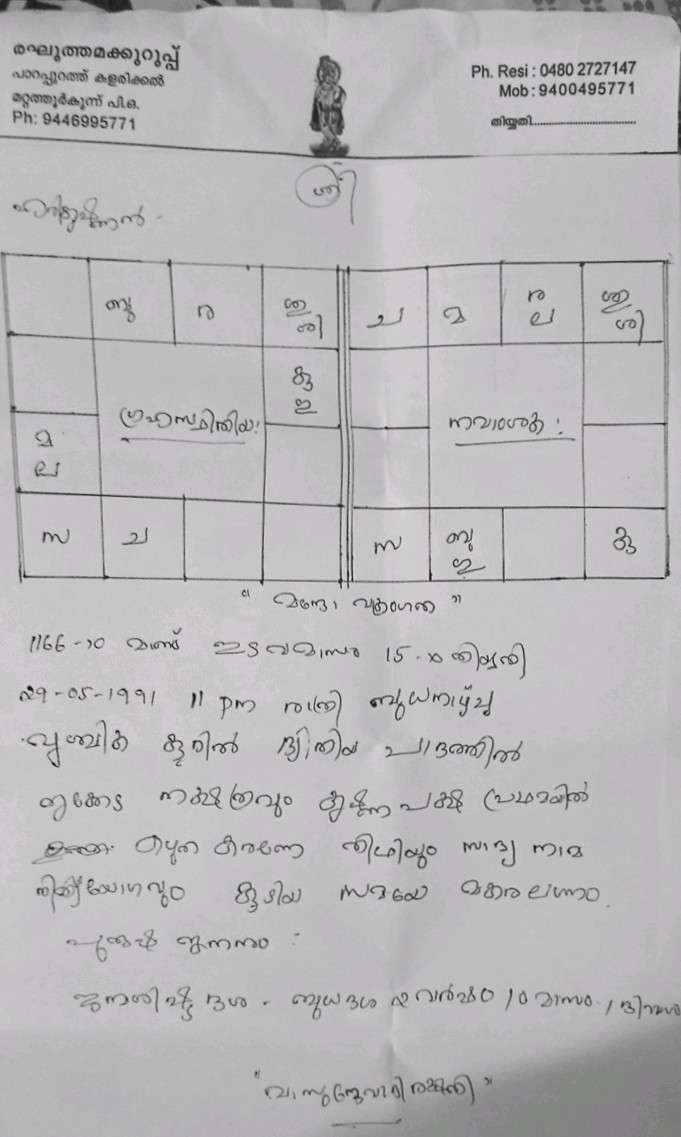 രഘൂത്തമക്കുറുപ്പ്
പാറപ്പുറത്ത് കളരിക്കൽ
മറ്റത്തൂർകുന്ന് പി.ഒ.
Ph: 9446995771
Ph. Resi : 0480 2727147
Mob : 9400495771
തിയ്യതി....................................
ശ്രീ
ഹരികൃഷ്ണൻ -
ബു ര
കു
മ
ല
സ ച
ഗ്രഹസ്ഥിതിയ:
ച മ ര
ല
സ ബു കു
നവാംശക :
1166 -ാo മാണ്ട് ഇടവമാസം 15-ാo തിയ്യതി
29-05-1991 11 pm രാത്രി ബുധനാഴ്ച
വൃശ്ചിക കൂറിൽ ദ്വിതീയ പാദത്തിൽ
തൃക്കേട്ട നക്ഷത്രവും കൃഷ്ണപക്ഷ പ്രഥമയിൽ
തിഥിയും നാമ
നിത്യയോഗവും കൂടിയ സമയേ മകരലഗ്നം.
പുരുഷ ജനനം :
ജനശിഷ്ട ദശ - ബുധദശ വർഷം 10 മാസം 1 ദിവസം